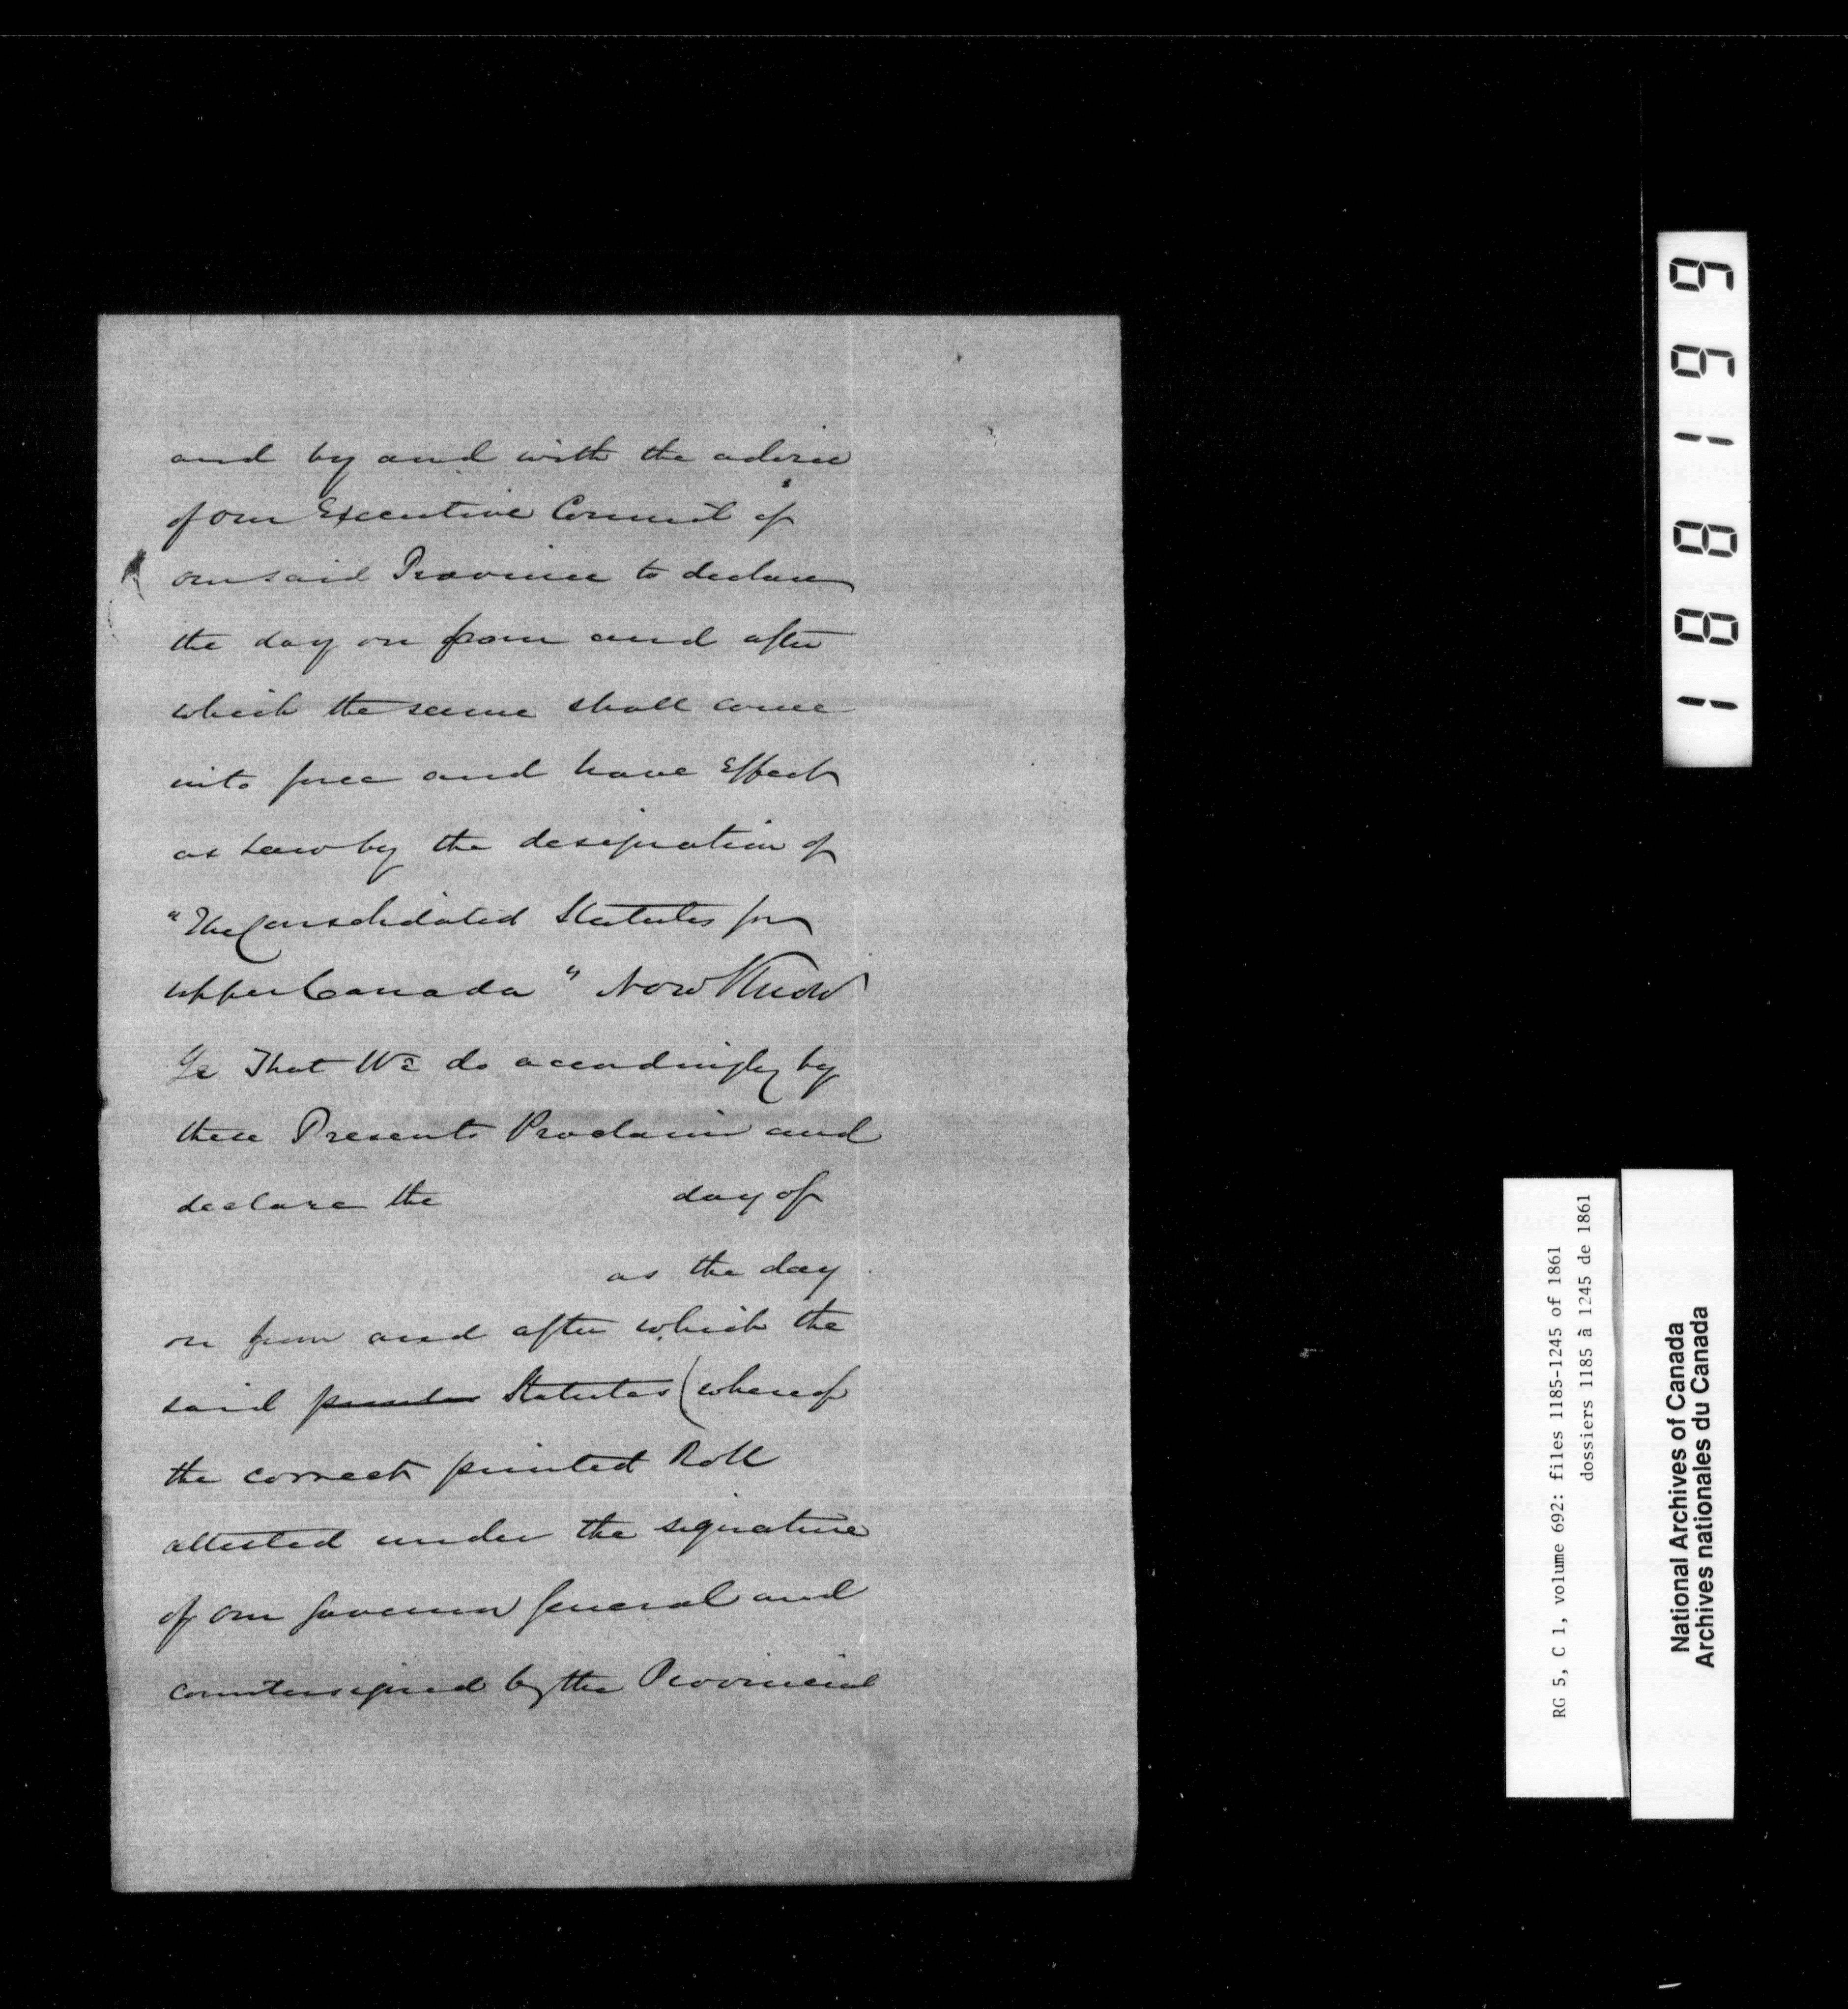 and by and with the advice
of our Executive Council of
our said Province to declare
the day on from and after
which the same shall come
into force and have Effect
as Law by the designation of
"The Consolidated Statutes for
upper Canada" Now Know
Ye That We do accordingly by
these Presents Proclaim and
declare the day of
as the day
on from and after which the
said Statutes (whereof
the correct printed Roll
attested under the signature
of our Governor General and
countersigned by the Provincial
188199
RG 5, C 1, volume 692: files 1185-1245 of 1861
dossiers 1185 à 1245 de 1861
National Archives of Canada
Archives nationales du Canada